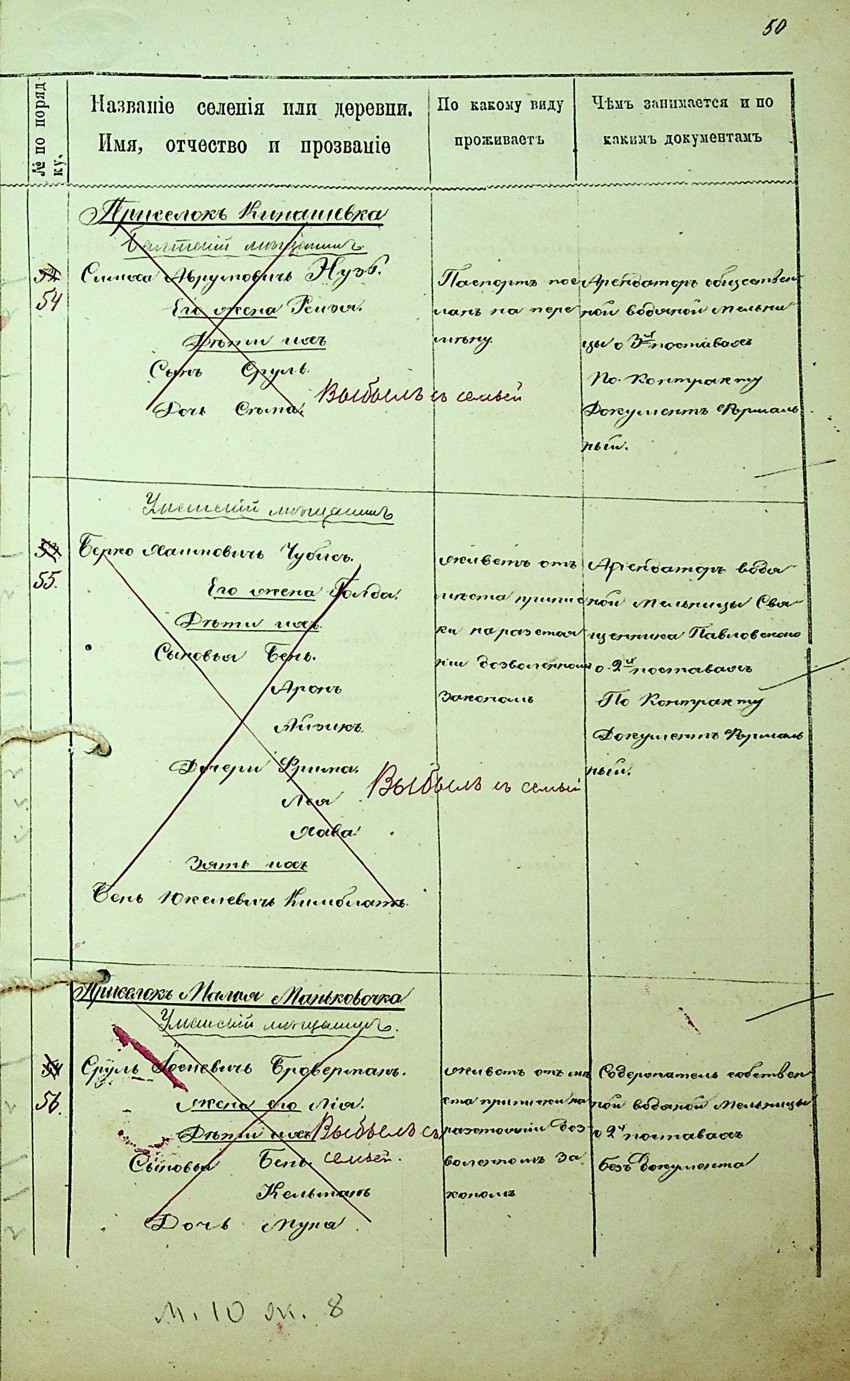 50
№ по поряд
ку.
Названіе селенія или деревни.
Имя, отчество и прозваніе
По какому виду
проживаетъ
Чѣмъ занимается и по
какимъ документамъ
Приселокъ Кинашевка
Балтскій мѣщанинъ
54
Симха Аврумовичъ
Его жена Рейзя.
Дѣти ихъ
Сынъ Сруль.
Дочь
Выбылъ съ семьей
Паспортъ пос
ланъ на пере
мѣну
Арендаторъ обществен
ной водяной мельни
цы о 3хъ поставахъ
По Контракту
Документъ Формаль
ный.
Уманскій мѣщанинъ
55.
Берко Хаимовичъ
Его жена Голда.
Дѣти ихъ.
Сыновья Бень.
Аронъ
Айзикъ.
Дочери Фрима.
Лея
Хава.
Зять ихъ
Бень Юкелевичъ Кимблатъ.
Выбылъ съ семьей
живетъ отъ
мѣста припис
ки на разстоя
ніи дозволенномъ
Закономъ
Арендаторъ водя
ной мельницы Свя
щенника Павловского
о 2хъ поставахъ
По Контракту
Документъ Формаль
ный.
Приселокъ Малая Маньковочка
Уманскій мѣщанинъ.
56.
Сруль Іосиевичъ Броверманъ.
Жена его Лія.
Дѣти ихъ
Сыновья Бень.
Кельманъ
Дочь
Выбылъ съ
семьей.
живетъ отъ мѣ
ста приписки на
разстояніи доз
воленномъ За
кономъ
Содержатель собствен
ной водяной мельницы
о 2хъ поставахъ
безъ документа
м. 10 ж. 8